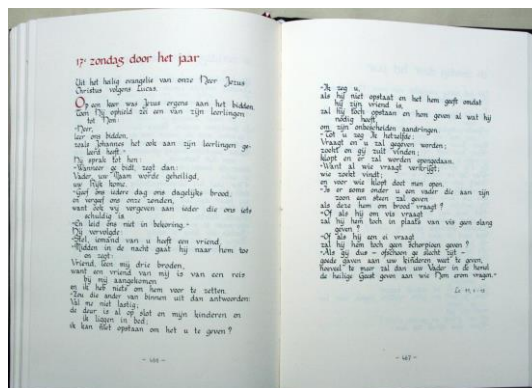 17e zondag door het jaar
Uit het heilig evangelie van onze Heer Jezus
Christus volgens Lucas.
Op een keer was Jezus ergens aan het bidden.
Toen Hij ophield zei een van zijn leerlingen
tot Hem:
-Heer,
leer ons bidden,
zoals Johannes het ook aan zijn leerlingen ge-
leerd heeft.-
Hij sprak tot hen:
-Wanneer ge bidt, zegt dan:
Vader, uw Naam worde geheiligd,
uw Rijk kome.
-Geef ons iedere dag ons dagelijks brood,
en vergeef ons onze zonden,
want ook wij vergeven aan ieder die ons iets
schuldig is
-En leid ons niet in bekoring.-
Hij vervolgde:
-Stel, iemand van u heeft een vriend.
-Midden in de nacht gaat hij naar hem toe
en zegt:
Vriend, leen mij drie broden,
want een vriend van mij is van een reis
bij mij aangekomen
en ik heb niets om hem voor te zetten.
-Zou die ander van binnen uit dan antwoorden:
Val me niet lastig;
de deur is al op slot en mijn kinderen en
ik liggen in bed;
ik kan niet opstaan om het u te geven?
-Ik zeg u,
als hij niet opstaat en het hem geeft omdat
hij zijn vriend is,
zal hij toch opstaan en hem geven al wat hij
nodig heeft,
om zijn onbescheiden aandringen.
-Tot u zeg Ik hetzelfde:
Vraagt en u zal gegeven worden;
zoekt en gij zult vinden;
klopt en er zal worden opengedaan.
-Want al wie vraagt verkrijgt;
wie zoekt vindt;
en voor wie klopt doet men open.
-Is er soms onder u een vader die aan zijn
zoon een steen zal geven
als deze hem om brood vraagt?
-Of als hij om vis vraagt
zal hij hem toch in plaats van vis geen slang
geven?
-Of als hij een ei vraagt
zal hij hem toch geen schorpioen geven?
-Als gij dus - ofschoon ge slecht zijt -
goede gaven aan uw kinderen weet te geven,
hoeveel te meer zal dan uw Vader in de hemel
de heilige Geest geven aan wie Hem erom vragen.-
Lc 11, 1-13